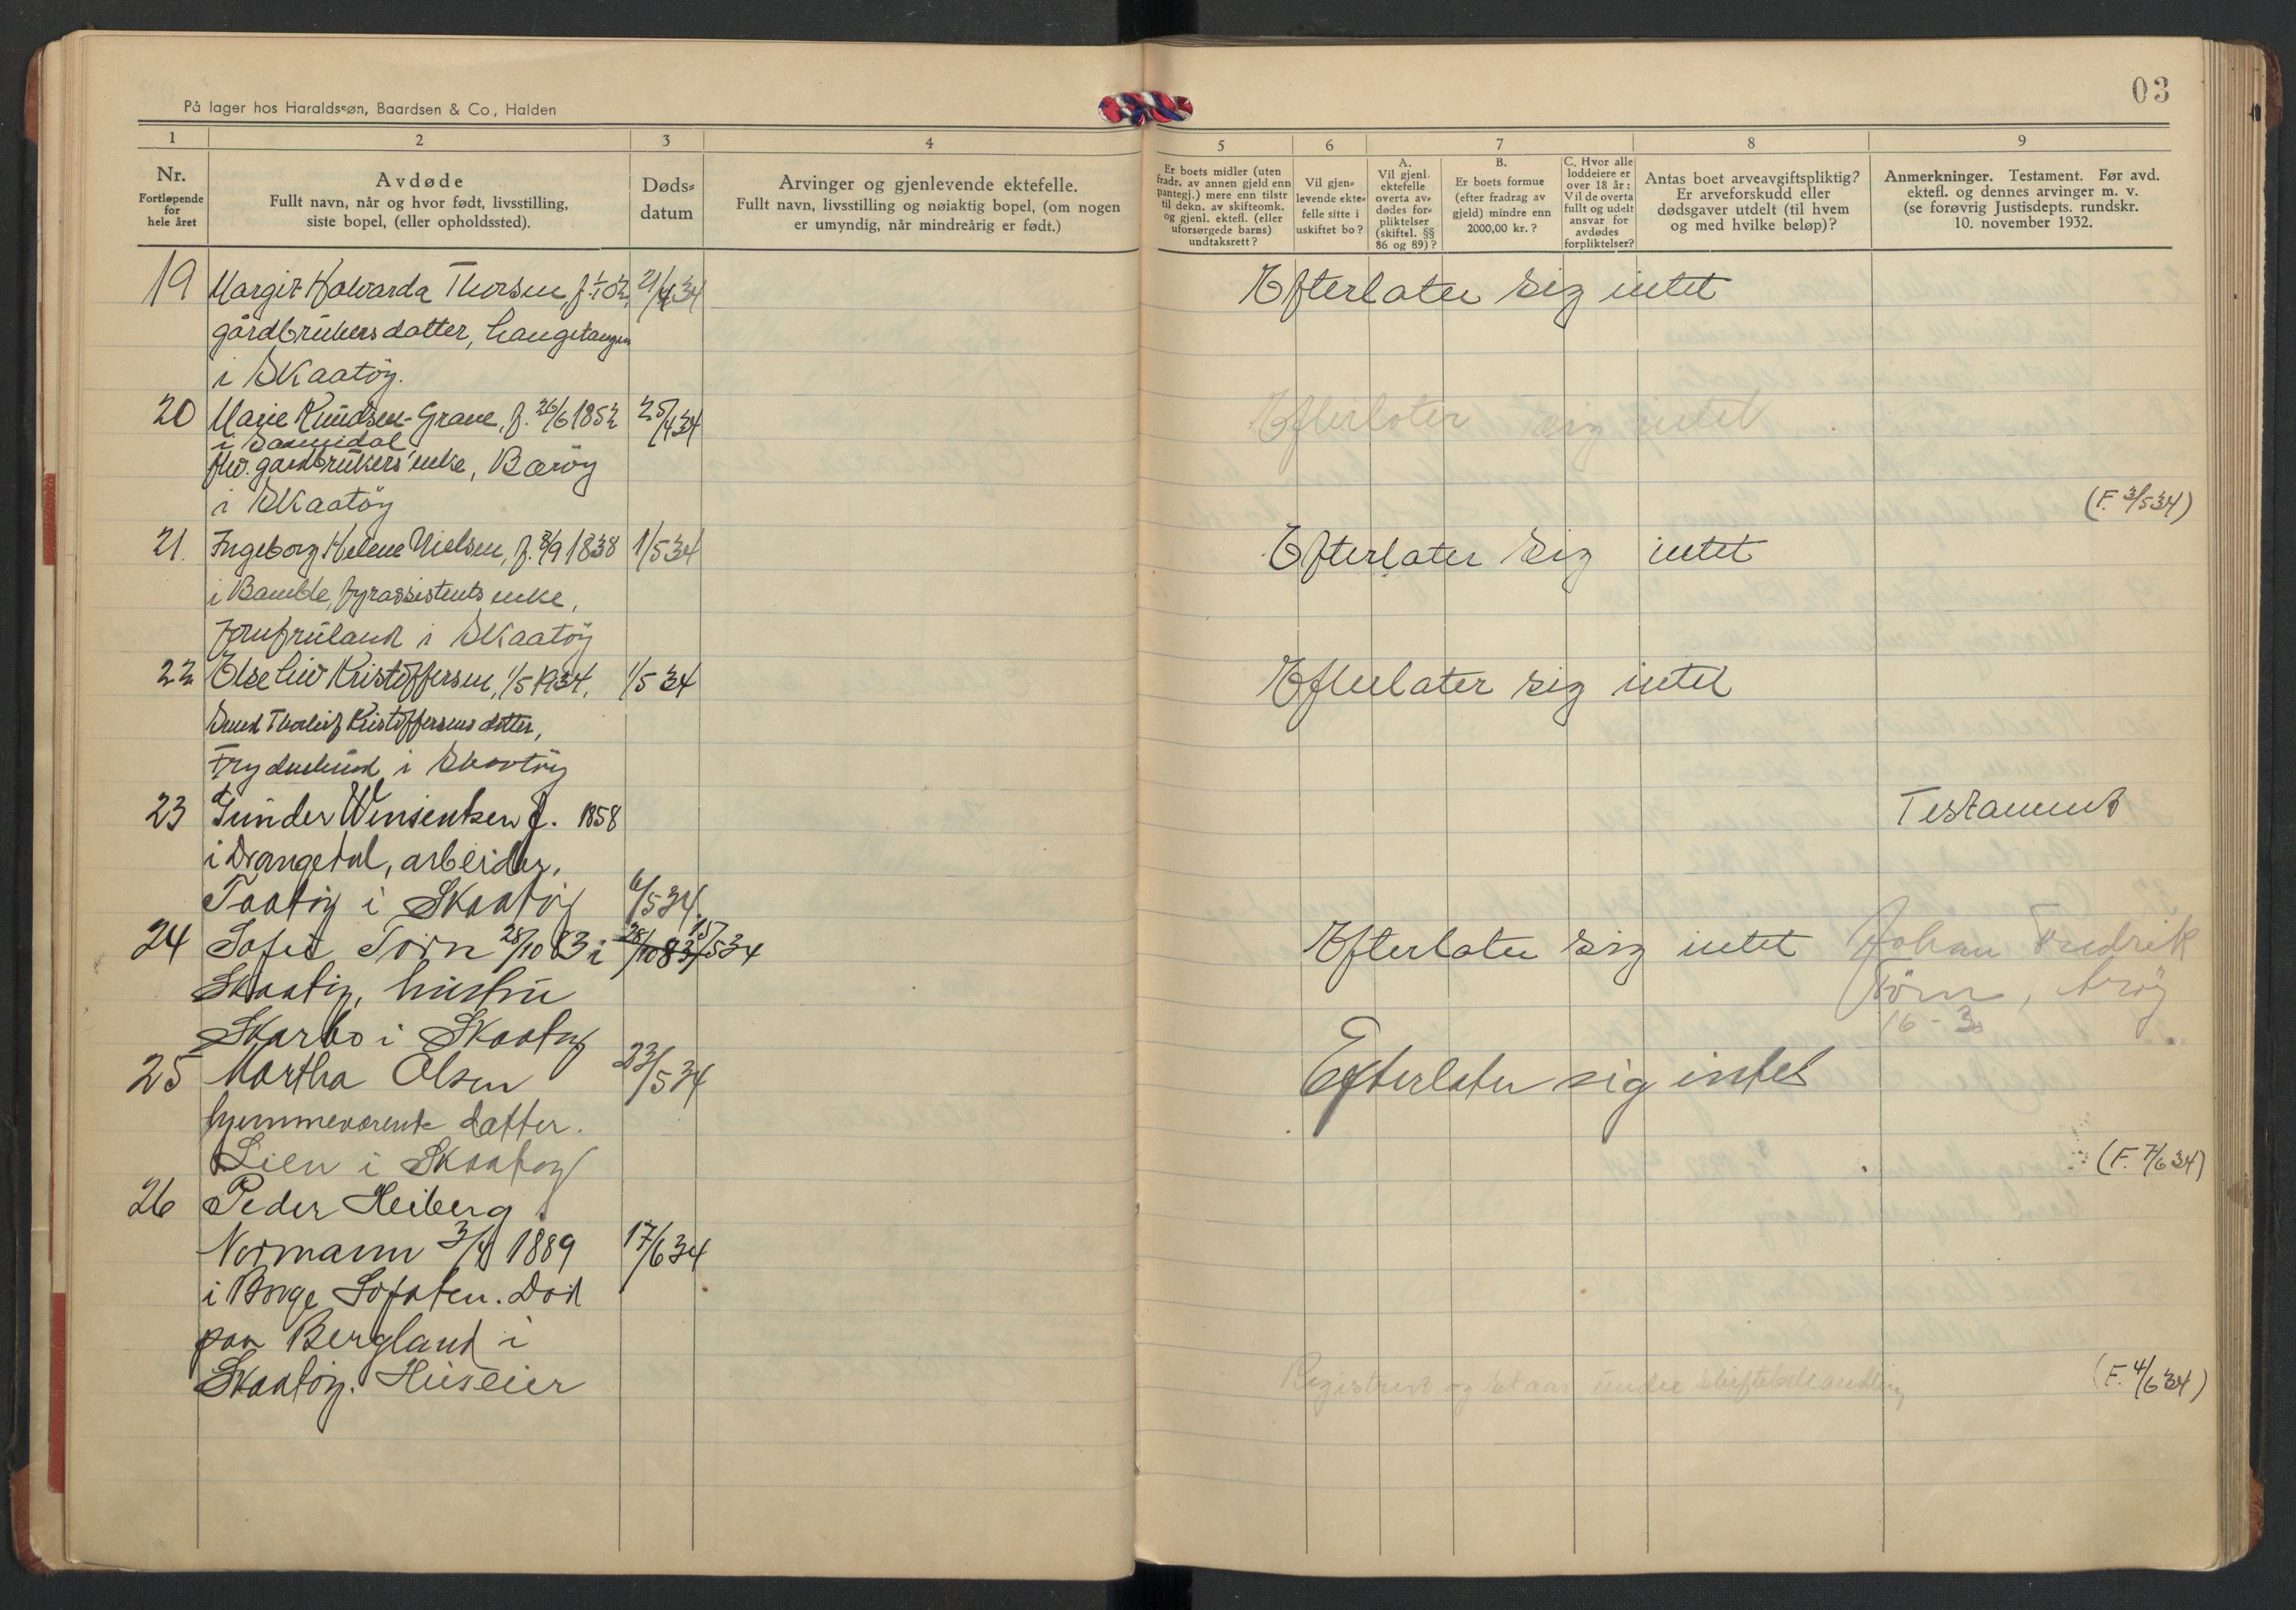 03
På lager hos Haraldssøn, Baardsen & Co., Halden
1 2 3 4 5 6 7 8 9
Nr.
Fortløpende
for
hele året
Avdøde
Fullt navn, når og hvor født, livsstilling,
siste bopel, (eller opholdssted).
Døds-
datum
Arvinger og gjenlevende ektefelle.
Fullt navn, livsstilling og nøiaktig bopel, (om nogen
er umyndig, når mindreårig er født.)
Er boets midler (uten
fradr. av annen gjeld enn
pantegj.) mere enn tilstr
til dekn. av skifteomk.
og gjenl. ektefl. (eller
uforsørgede barns)
undtaksrett?
Vil gjen-
levende ekte-
felle sitte i
uskiftet bo?
A.
Vil gjenl.
ektefelle
overta av-
dødes for-
pliktelser
(skiftel. §§
86 og 89)?
B.
Er boets formue
(efter fradrag av
gjeld) mindre enn
2000,00 kr.?
C. Hvor alle
loddeiere er
over 18 år:
Vil de overta
fullt og udelt
ansvar for
avdødes
forpliktelser?
Antas boet arveavgiftspliktig?
Er arveforskudd eller
dødsgaver utdelt (til hvem
og med hvilke beløp)?
Anmerkninger. Testament. Før avd.
ektefl. og dennes arvinger m. v.
(se forøvrig Justisdepts. rundskr.
10. november 1932.
19 Margit Halvarda Thorsen, f. 21/4 34 Efterlater sig intet
gårdbrukers datter, Langetangen
i Skaatöy.
20 Marie Knudsen-Grave, f. 26/6 1852 25/4 34 Efterlater sig intet
i Sannidal
fhv. gardbrukers enke, Baröy
i Skaatöy (F. 3/5 34)
21. Ingeborg Helene Nielsen, f. 8/9 1838 1/5 34 Efterlater sig intet
i Bamble, fyrassistents enke,
Jomfruland i Skaatöy
22 Else Liv Kristoffersen, 1/5 1934, 1/5 34 Efterlater sig intet
Thorleif Kristoffersens datter,
Frydenlund i Skaatöy
23 Gunder Winsentsen f. 1858 Testament
i Drangedal, arbeider,
Taatöy i Skaatöy 6/5 34
24 Sofie Törn 28/10 83 i 28/10 83 15/5 34 Efterlater sig intet Johan Fredrik
Skaatöy, hustru Törn, Aröy
Skarbo i Skaatöy 16 - 30
25 Martha Olsen 23/5 34 Efterlater sig intet
hjemmeværende datter.
Lien i Skaatöy (F. 7/6 34)
26 Peder Heiberg
Normann 3/4 1889 17/6 34
i Borge Lofoten. Död
paa Bergland i
Skaatöy. Huseier Registrert og staar under skiftebehandling (F. 4/6 34)